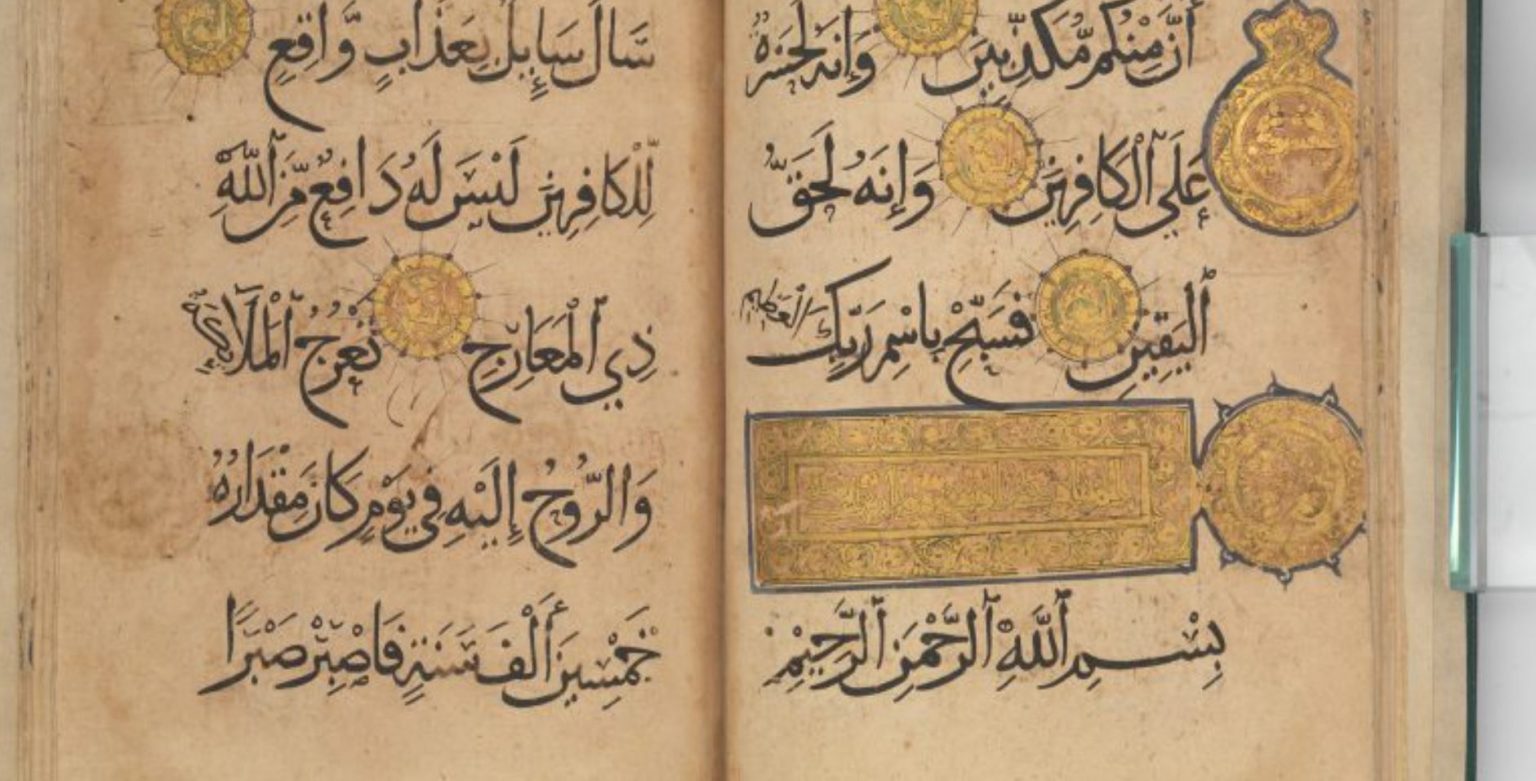 أَنَّ مِنْكُم مُّكَذِّبِينَ وَإِنَّهُ لَحَسْرَةٌ
عَلَى ٱلْكَافِرِينَ وَإِنَّهُ لَحَقُّ
ٱلْيَقِينِ فَسَبِّحْ بِاسْمِ رَبِّكَ ٱلْعَظِيمِ
بِسْمِ ٱللَّهِ ٱلرَّحْمَٰنِ ٱلرَّحِيمِ
سَأَلَ سَايِلٌ بِعَذَابٍ وَّاقِعٍ
لِّلْكَافِرِينَ لَيْسَ لَهُ دَافِعٌ مِّنَ ٱللَّهِ
ذِي ٱلْمَعَارِجِ تَعْرُجُ ٱلْمَلَآئِكَةُ
وَالرُّوحُ إِلَيْهِ فِي يَوْمٍ كَانَ مِقْدَارُهُ
خَمْسِينَ أَلْفَ سَنَةٍ فَاصْبِرْ صَبْرًا